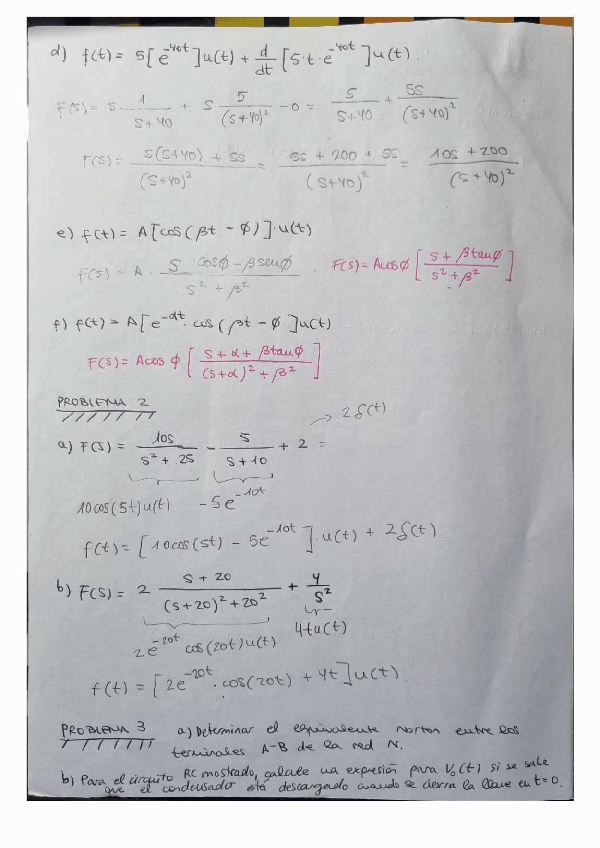 d) f(t) = 5[e^-40t]u(t) + d/dt [5·t·e^-40t]u(t).
F(s) = 5 · 1/(s+40) + s · 5/(s+40)² - 0 = 5/(s+40) + 5s/(s+40)²
F(s) = (5(s+40) + 5s)/(s+40)² = (5s + 200 + 5s)/(s+40)² = (10s + 200)/(s+40)²
e) f(t) = A[cos(βt - ϕ)]·u(t)
F(s) = A · (s cosϕ - β senϕ)/(s² + β²) . F(s) = A cosϕ [(s + β tanϕ)/(s² + β²)]
f) f(t) = A[e^-αt · cos(βt - ϕ]u(t)
F(s) = A cos ϕ [(s + α + β tanϕ)/((s+α)² + β²)]
PROBLEMA 2
→ 2δ(t)
a) F(s) = 10s/(s² + 25) - 5/(s + 10) + 2 =
10cos(5t)u(t) - 5e^-10t
f(t) = [10cos(5t) - 5e^-10t]·u(t) + 2δ(t).
b) F(s) = 2 (s + 20)/((s+20)² + 20²) + 4/s²
2e^-20t cos(20t)u(t) 4tu(t)
f(t) = [2e^-20t · cos(20t) + 4t]u(t).
PROBLEMA 3 a) Determinar el equivalente Norton entre los
terminales A-B de la red N.
b) Para el circuito RC mostrado, calcule una expresión para V₀(t) si se sabe
que el condensador está descargado cuando se cierra la llave en t=0.